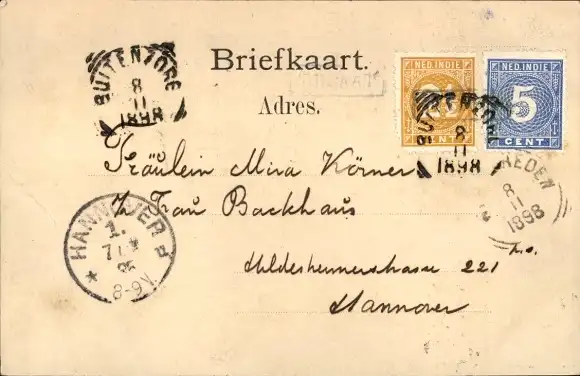 Briefkaart.
Adres.
NED. INDIE
2½
CENT
NED. INDIE
5
CENT
BUITENZORG
8
11
1898
BUITENZORG
8
11
1898
REDEN
8
11
1898
Fräulein Mira Körner
Frau Backhaus
Hildesheimerstrasse 221
Hannover
HANNOVER
1.
8-9V.